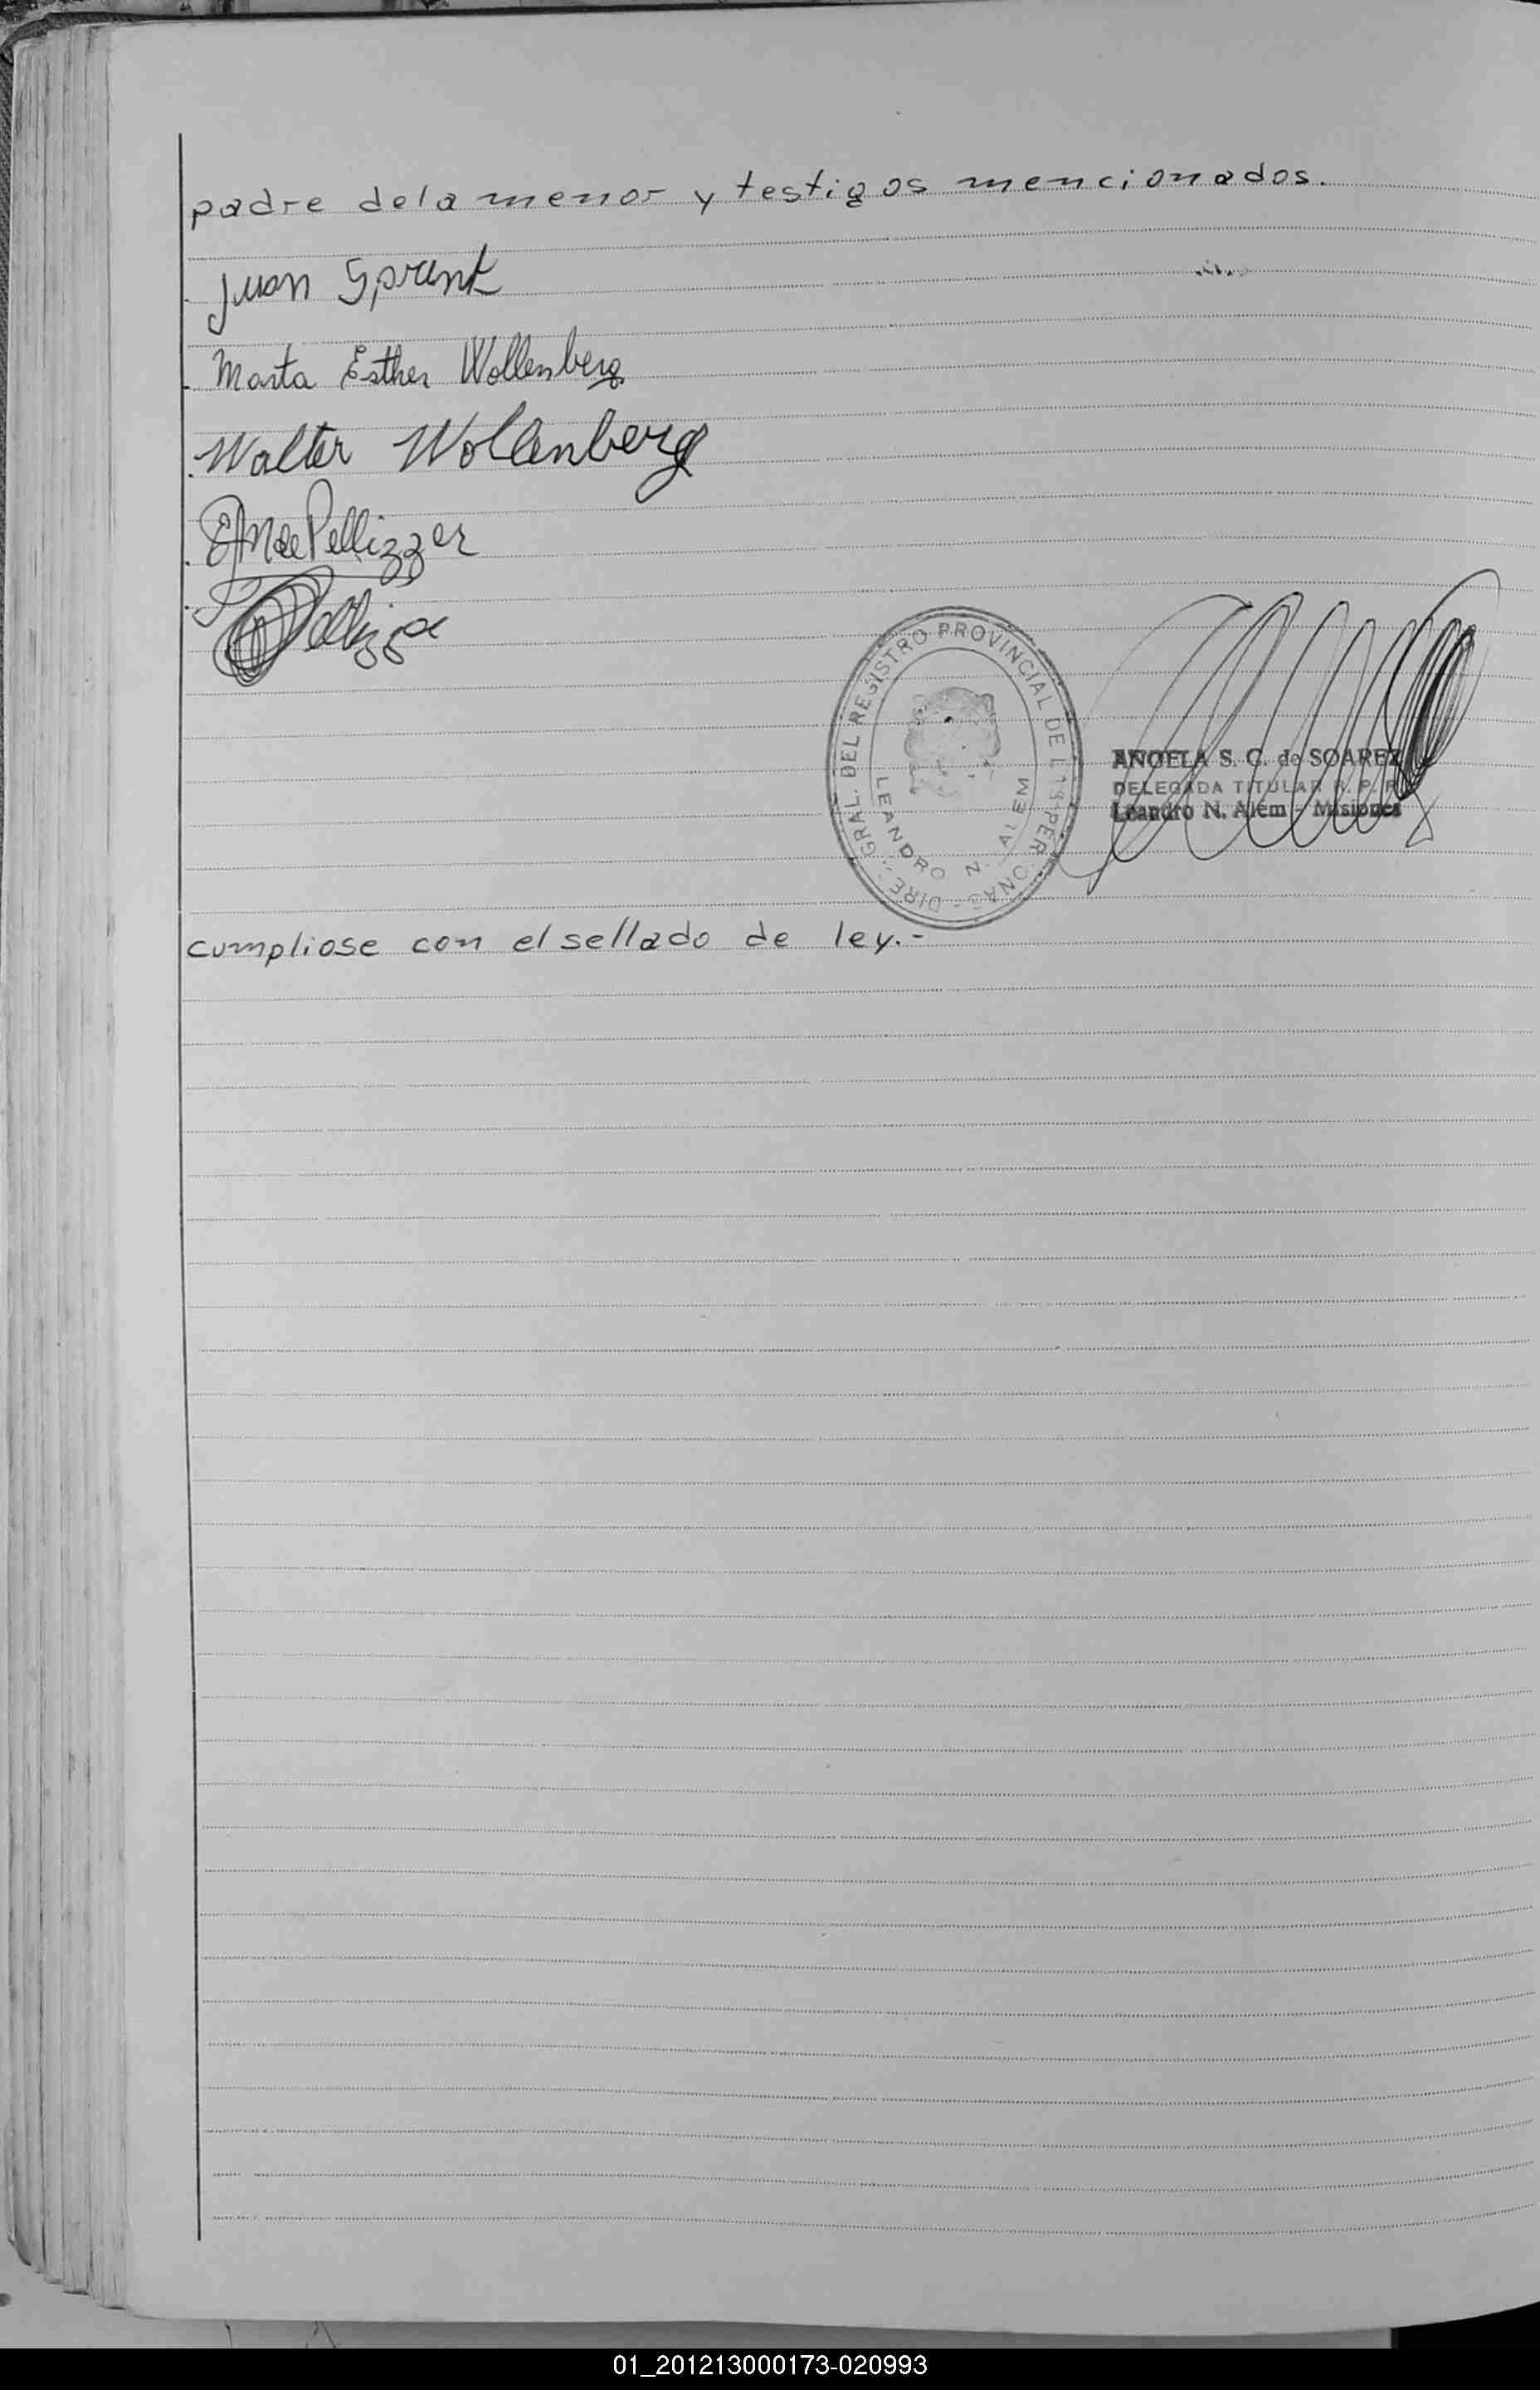 padre de la menor y testigos mencionados.
Juan Sprunk
Marta Esther Wollenberg
Walter Wollenberg
de Pellizzer
DIRE. GRAL. DEL REGISTRO PROVINCIAL DE LAS PERSONAS
LEANDRO N. ALEM
ANGELA S. C. de SOAREZ
DELEGADA TITULAR R. P. P.
Leandro N. Alem - Misiones
cumpliose con el sellado de ley.-
01_201213000173-020993